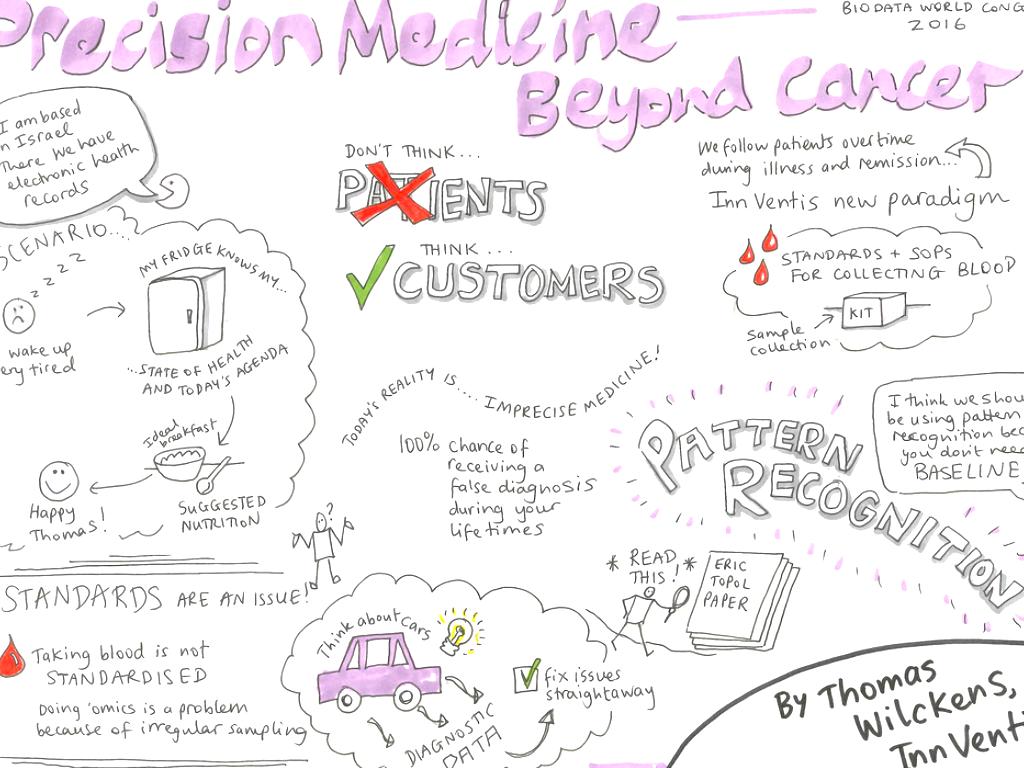 Precision Medicine
Beyond Cancer
BIODATA WORLD CONG
2016
I am based
in Israel
There we have
electronic health
records
SCENARIO...
z z z z
wake up
very tired
MY FRIDGE KNOWS MY...
...STATE OF HEALTH
AND TODAY'S AGENDA
Ideal
breakfast
SUGGESTED
NUTRITION
Happy
Thomas!
DON'T THINK...
PATIENTS
THINK...
CUSTOMERS
TODAY'S REALITY IS.... IMPRECISE MEDICINE!
100% chance of
receiving a
false diagnosis
during your
lifetimes
We follow patients overtime
during illness and remission...
InnVentis new paradigm
STANDARDS + SOPS
FOR COLLECTING BLOOD
KIT
Sample
collection
PATTERN
RECOGNITION
I think we shou
be using pattern
recognition bec
you don't need
BASELINE
* READ *
THIS!
ERIC
TOPOL
PAPER
?
STANDARDS ARE AN ISSUE!
Taking blood is not
STANDARDISED
Doing 'omics is a problem
because of irregular sampling
Think about cars
DIAGNOSTIC
DATA
fix issues
straightaway
By Thomas
Wilckens,
InnVenti